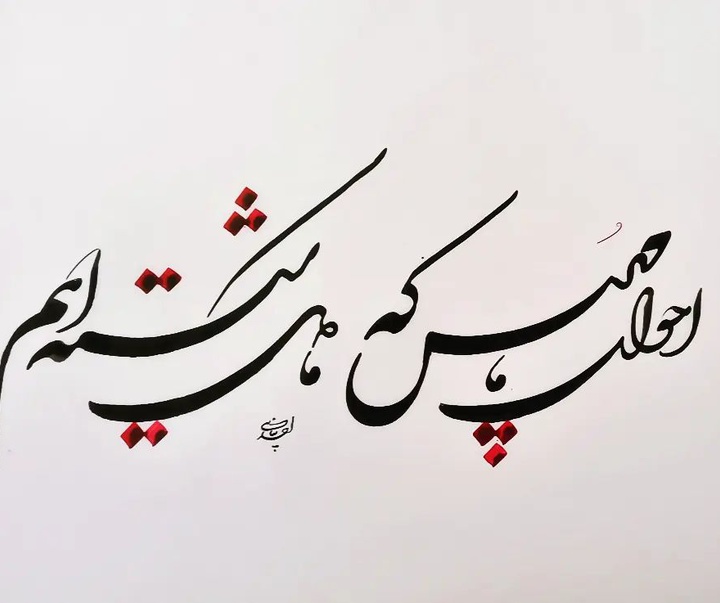 احوال ما مپرس که ما شکسته ایم